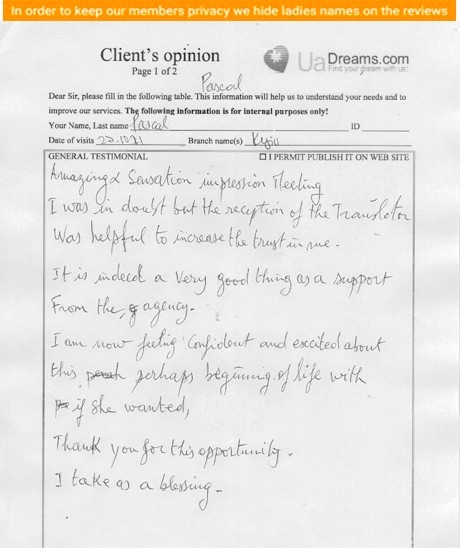 In order to keep our members privacy we hide ladies names on the reviews
Client's opinion
Page 1 of 2
UaDreams.com
Find your dream with us!
Pascal
Dear Sir, please fill in the following table. This information will help us to understand your needs and to
improve our services. The following information is for internal purposes only!
Your Name, Last name Pascal ID
Date of visits 22-10-21 Branch name(s) Kyiv
GENERAL TESTIMONIAL ☐ I PERMIT PUBLISH IT ON WEB SITE
Amazing & Sensation impression Meeting
I was in doubt but the reception of the Translator
Was helpful to increase the trust in me.
It is indeed a Very good thing as a support
From the agency.
I am now feeling Confident and excited about
this perhaps beginning of life with
if she wanted,
Thank you for this opportunity.
I take as a blessing.